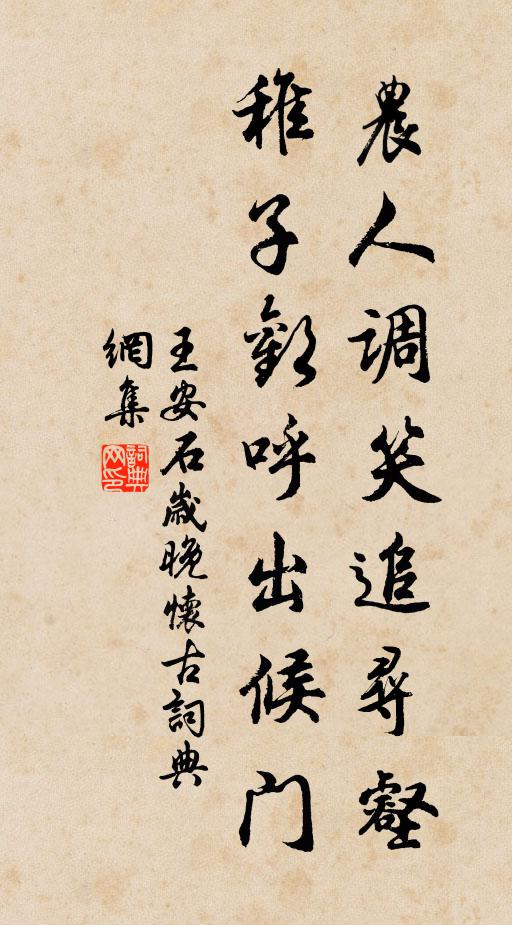 農人調笑追尋壑
稚子歡呼出候門
王安石歲晚懷古詞典
網集
詞典
网印